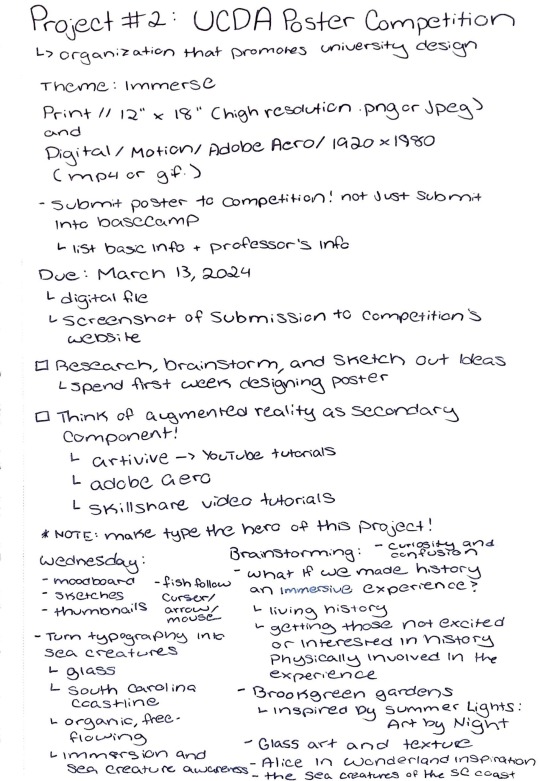 Project #2: UCDA Poster Competition
↳ organization that promotes university design
Theme: Immerse
Print // 12" x 18" (high resolution .png or Jpeg)
and
Digital / Motion / Adobe Aero / 1920 x 1980
(mp4 or gif.)
- Submit poster to competition! not just submit
into basecamp
└ list basic info + professor's info
Due: March 13, 2024
└ digital file
└ Screenshot of Submission to competition's
website
□ Research, brainstorm, and sketch out Ideas
└ spend first week designing poster
□ Think of augmented reality as secondary
component!
└ artivive -> YouTube tutorials
└ adobe aero
└ Skillshare video tutorials
* NOTE: make type the hero of this project!
Wednesday:
- moodboard
- sketches
- thumbnails
- fish follow
curser/
arrow/
mouse
- Turn typography into
sea creatures
└ glass
└ South Carolina
Coastline
└ organic, free-
flowing
└ immersion and
sea creature awareness
Brainstorming:
- curiosity and
confusion
- what if we made history
an immersive experience?
└ living history
└ getting those not excited
or interested in history
Physically involved in the
experience
- Brookgreen gardens
└ Inspired by Summer Lights:
Art by Night
- Glass art and texture
- Alice in Wonderland inspiration
- the sea creatures of the SC coast